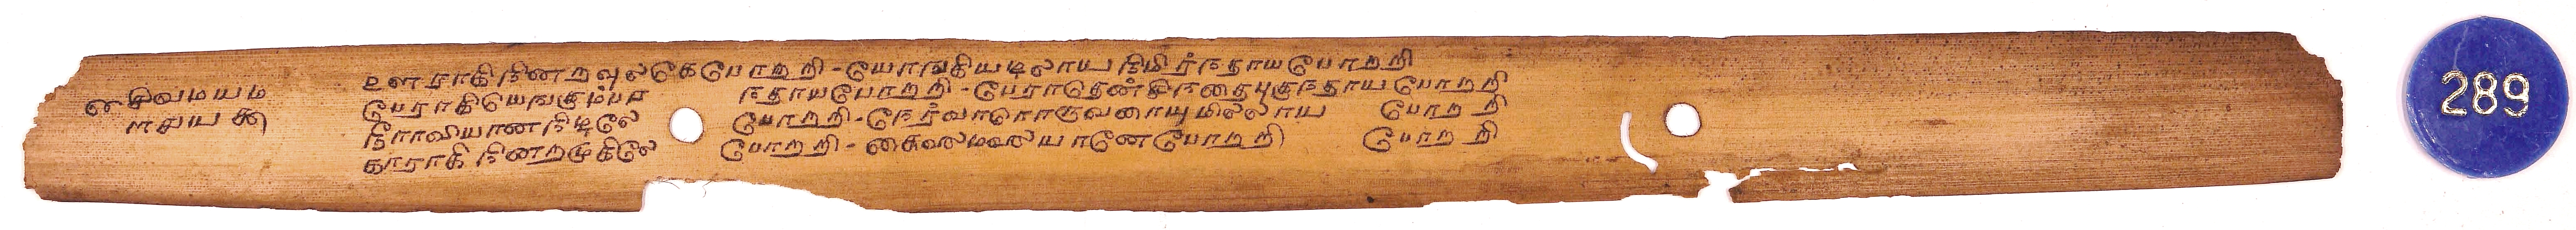 சிவமயம
ஊராகி நினறவுலகே போறறி - யோஙகியடிலாய நிமிர்நதாய போறறி
பேராகியெஙகும்பர நதாயபோறறி - பேராதென்சிநதைபுகுநதாய போறறி
நீராவியானநிடிலே போறறி - நேர்வாரொருவரையுமிலலாய போறறி
காராகி நினறமுகிலே போறறி - கைலைமலையானேபோறறி போறறி
289